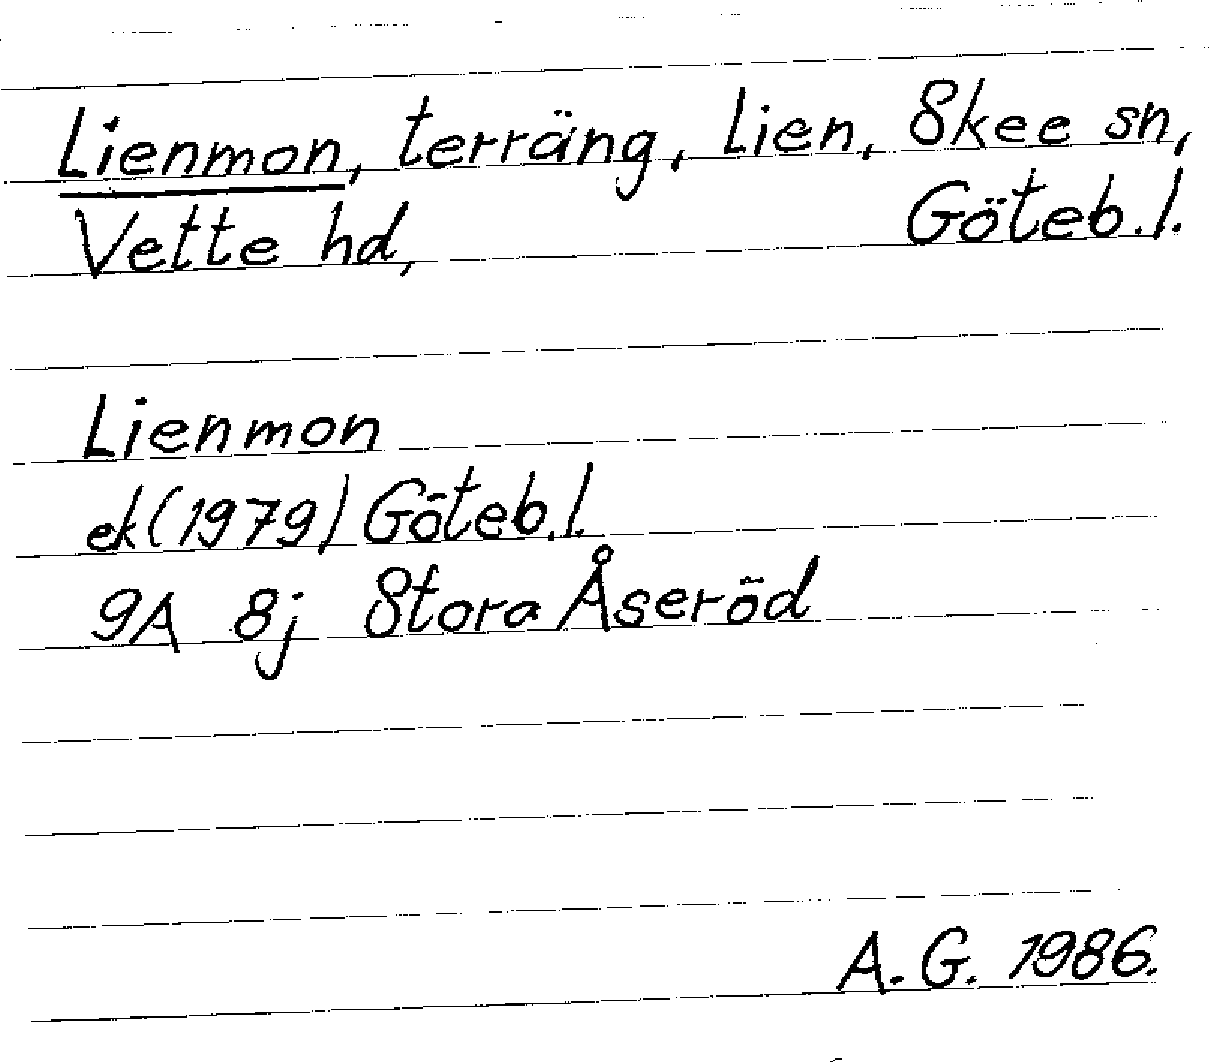 Lienmon, terräng, Lien, Skee sn,
Vette hd, Göteb.l.
Lienmon
ek (1979) Göteb.l.
9A 8j Stora Åseröd
A.G. 1986.